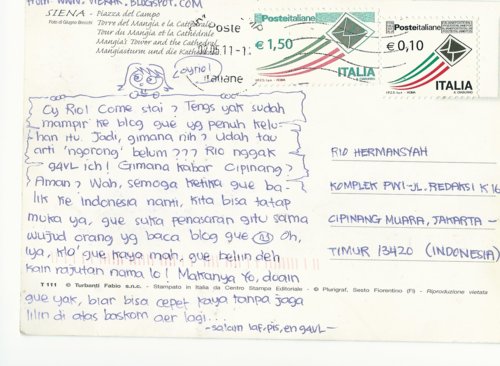 SIENA - Piazza del Campo
Torre del Mangia e la Cattedrale
Tour du Mangia et la Cathédrale
Mangia Tower and the Cathedral
Mangiasturm und die Kathedrale
Posteitaliane
€ 1,50
ITALIA
Posteitaliane
€ 0,10
ITALIA
Poste
.05.11-1
italiane
Cyrio!
Cy Rio! Come stai? Tengs yak sudah
mampir ke blog gue yg penuh kelu-
han itu. Jadi, gimana nih? Udah tau
arti 'ngorong' belum??? Rio nggak
gavl ich! Gimana kabar Cipinang?
Aman? Wah, semoga ketika gue ba-
lik ke Indonesia nanti, kita bisa tatap
muka ya, gue suka penasaran gitu sama
wujud orang yg baca blog gue Oh,
iya, klo gue kaya mah, gue beliin deh
kain rajutan nama lo! Makanya Yo, doain
gue yak, biar bisa cepet kaya tanpa jaga
lilin di atas baskom aer lagi...
-salam laf, pis, en gavl-
RIO HERMANSYAH
KOMPLEK PWI-JL. REDAKSI K 16
CIPINANG MUARA, JAKARTA-
TIMUR 13420 (INDONESIA)
T 111 © Turbanti Fabio s.n.c. - Stampato in Italia da Centro Stampa Editoriale - © Plurigraf, Sesto Fiorentino (FI) - Riproduzione vietata